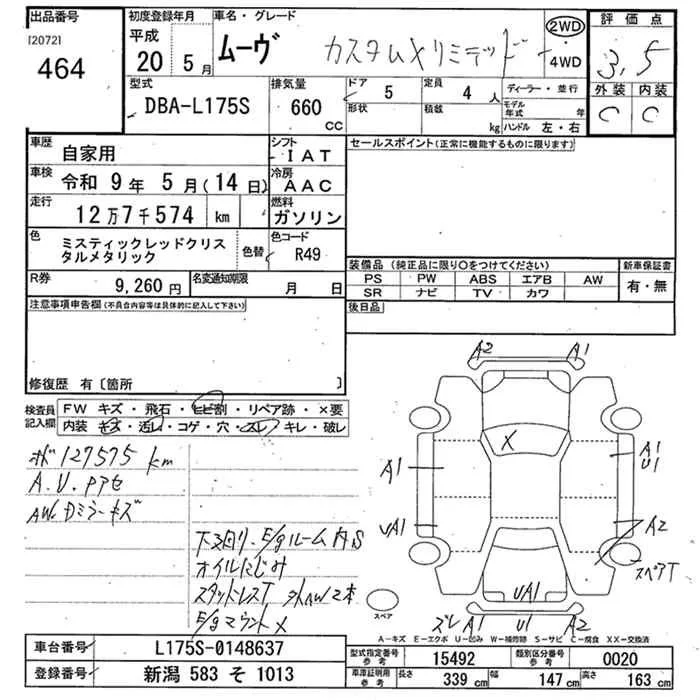 出品番号
[2072]
464
初度登録年月
平成
20 5月
車名・グレード
ムーヴ カスタムXリミテッド
2WD
4WD
評価点
3.5
外装 内装
C C
型式
DBA-L175S
排気量
660
CC
ドア
5
形状
定員
4人
積載
kg
ディーラー・並行
モデル年式 年
ハンドル 左・右
車歴
自家用
シフト
IAT
車検
令和9年5月(14日)
冷房
AAC
走行
12万7千574 km
燃料
ガソリン
色
ミスティックレッドクリスタルメタリック
色替
色コード
R49
R券
9,260円
名変通知期限
月 日
セールスポイント(正常に機能するものに限ります)
装備品(純正品に限り〇をつけてください)
新車保証書
PS PW ABS エアB AW
SR ナビ TV カワ
有・無
後日品
注意事項申告欄(不具合内容等は具体的に記入して下さい)
修復歴 有〔箇所 〕
検査員記入欄
FW キズ・飛石・ヒビ割・リペア跡・×要
内装 キズ・汚れ・コゲ・穴・スレ・キレ・破レ
127575 km
A.U.
AW Dミラーキズ
下回り.E/gルーム内S
オイルにじみ
スタッドレスT
E/gマウント×
A2 A1
X
A1
A1
U1
UA1
A2
スペアT
UA1
ズレ A1 U1 A2
スペア
A－キズ E－エクボ U－凹み W－補修跡 S－サビ C－腐食 XX－交換済
車台番号
L175S-0148637
登録番号
新潟 583 そ 1013
型式指定番号
参考
15492
類別区分番号
参考
0020
車庫証明用
参考
長さ
339 cm
幅
147 cm
高さ
163 cm